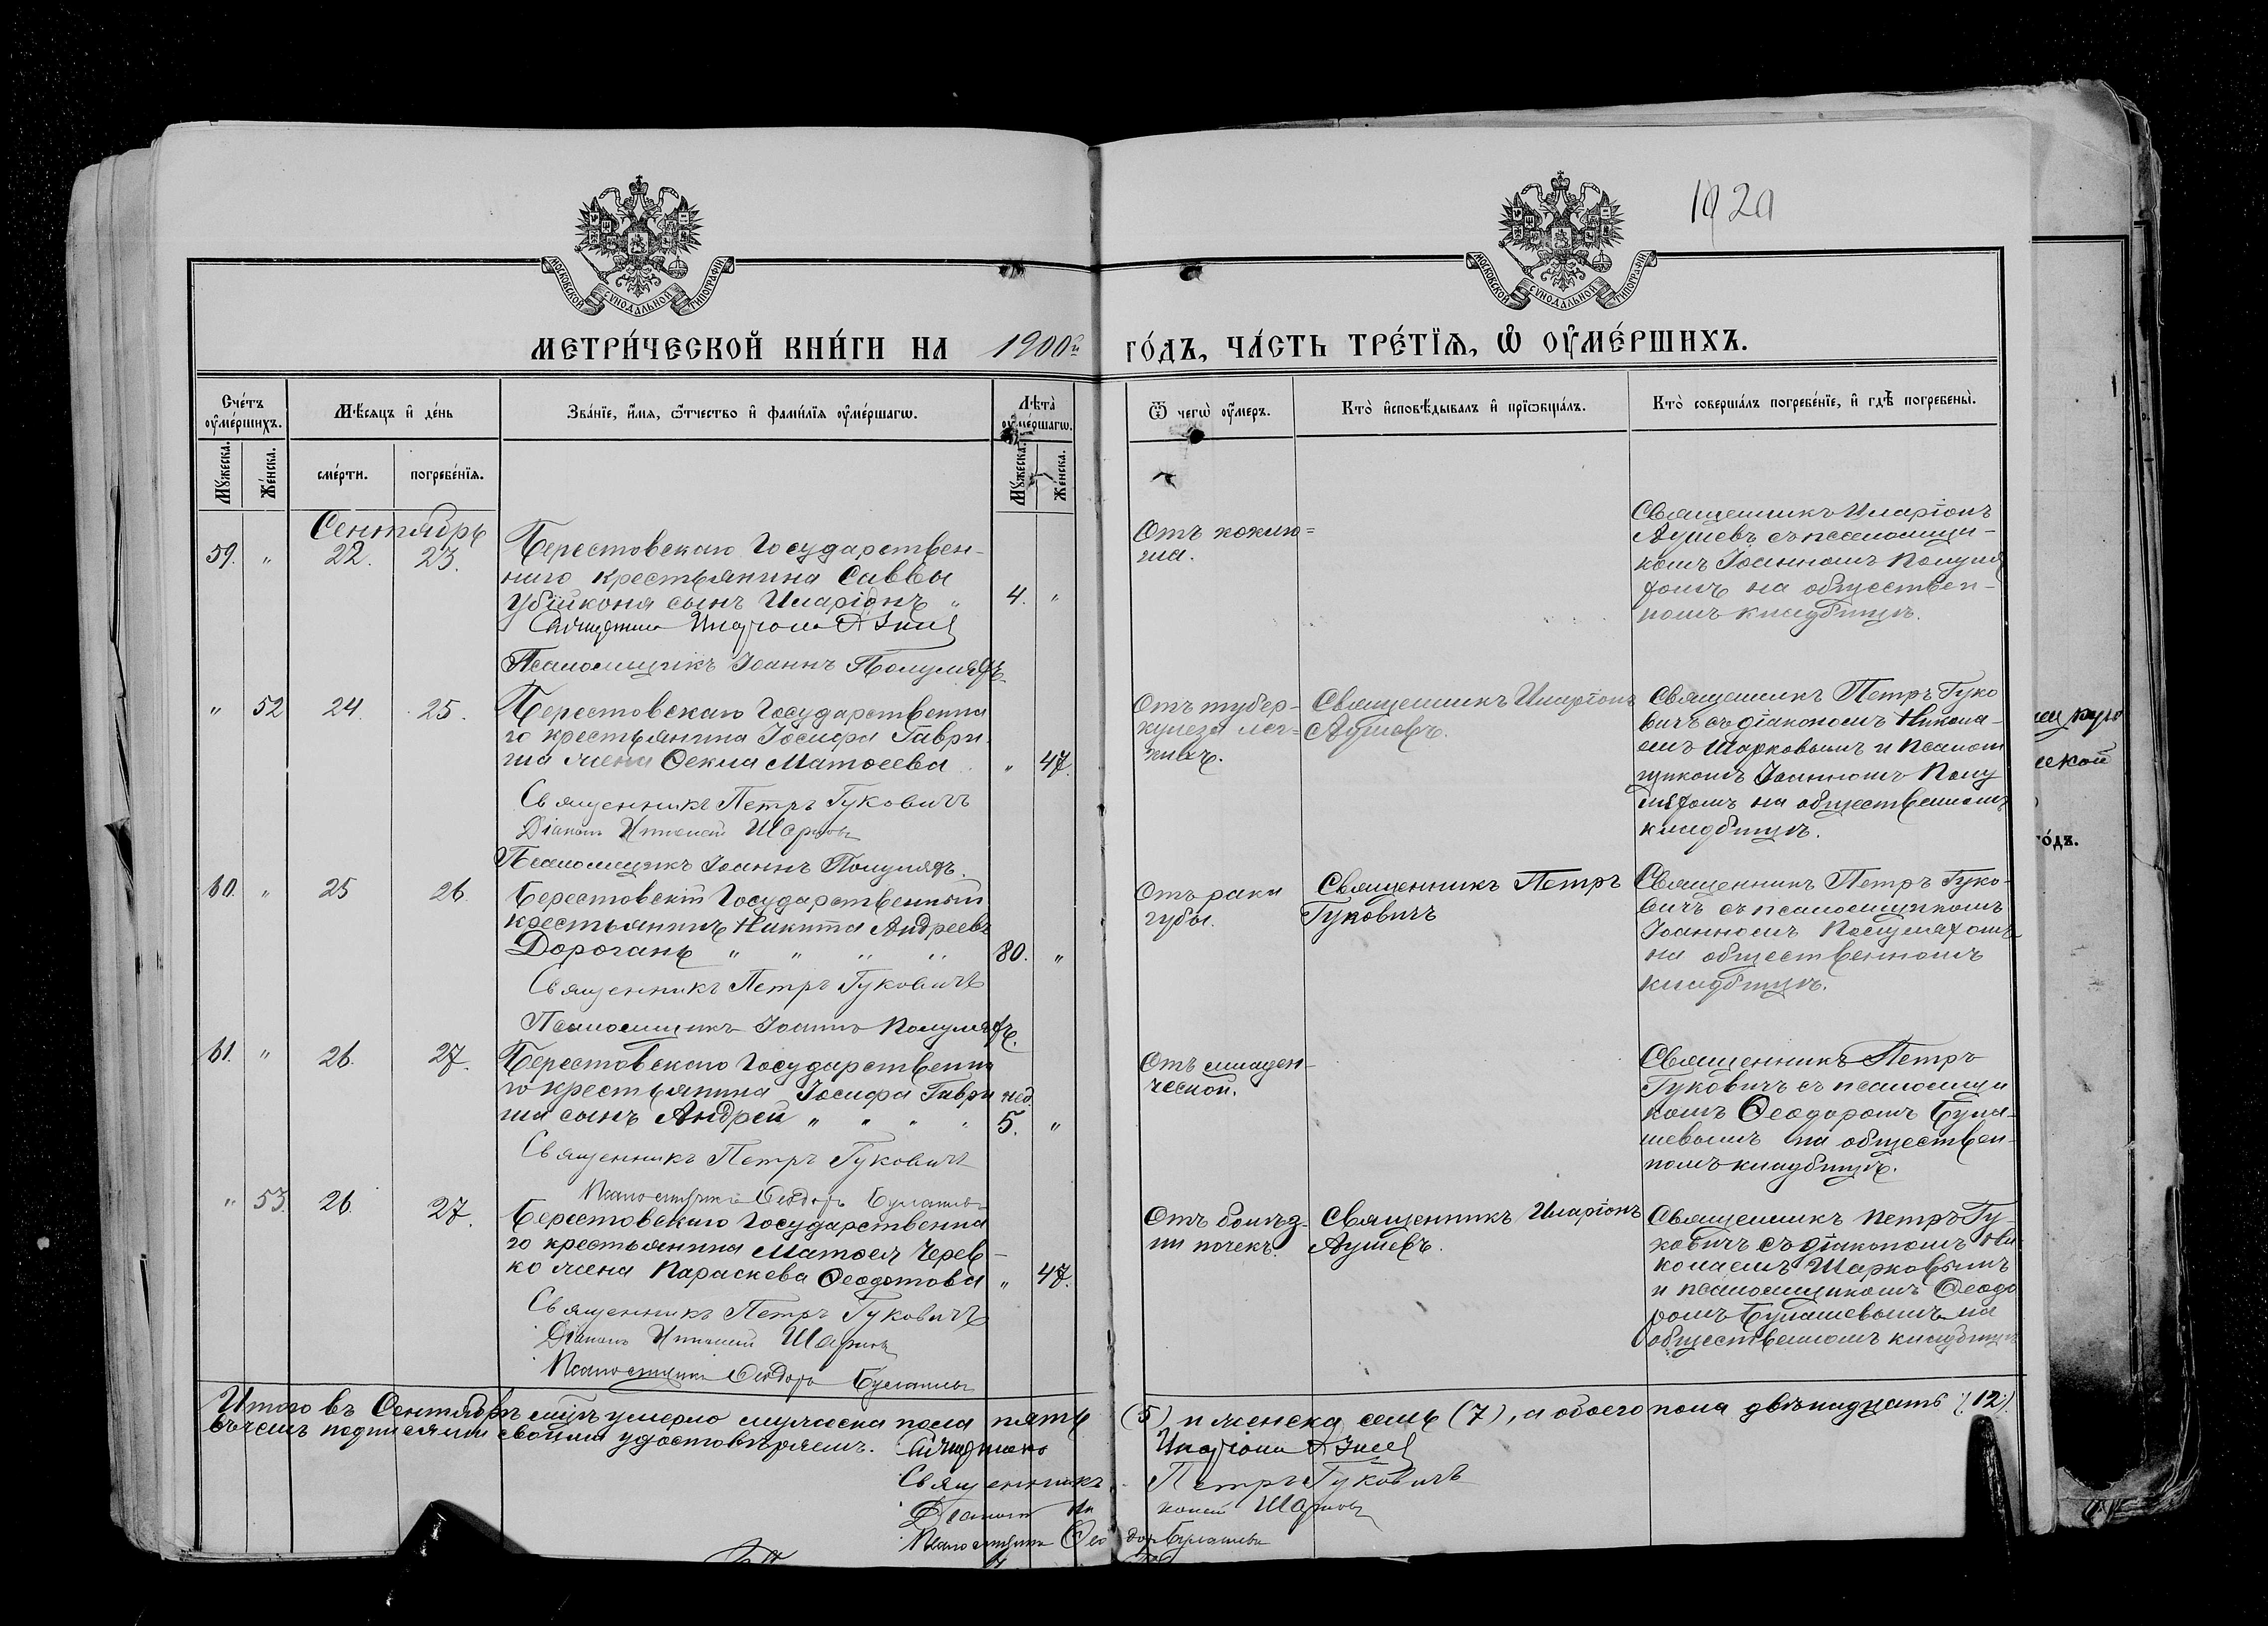 1920
МОСКОВСКОЙ СѴНОДАЛЬНОЙ ТИПОГРАФІИ
МОСКОВСКОЙ СѴНОДАЛЬНОЙ ТИПОГРАФІИ
МЕТРИ́ЧЕСКОЙ КНИ́ГИ НА 1900й ГО́ДЪ, ЧА́СТЬ ТРЕ́ТЇѦ, Ѽ ОУ҆МЕ́РШИХЪ.
Сче́тъ оу҆ме́ршихъ.
Мѣ́сѧцъ и҆ де́нь
Зва́нїе, и҆́мѧ, ѻ҆́тчество и҆ фами́лїѧ оу҆ме́ршагѡ.
Лѣ́та оу҆ме́ршагѡ.
Ѿ чегѡ̀ оу҆́меръ.
Кто̀ и҆сповѣ́дывалъ и҆ прїѡбща́лъ.
Кто̀ соверша́лъ погребе́нїе, и҆ гдѣ̀ погребены̀.
Мꙋ́жеска.
Же́нска.
сме́рти.
погребе́нїѧ.
Мꙋ́жеска.
Же́нска.
Сентябрь
59. " 22. 23.
Берестовскаго Государствен-
наго крестьянина Саввы
Убійконя сынъ Иларіонъ " 4. "
Псаломщикъ Іоаннъ Полуляхъ.
Отъ коклю=
ша.
Священникъ Иларіонъ
Аушевъ съ псаломщи-
комъ Іоанномъ Полуля
хомъ на обществен-
номъ кладбищѣ.
" 52 24. 25.
Берестовскаго Государственна
го крестьянина Іосифа Гаври
ша жена Ѳекла Матѳеева " 47.
Священникъ Петръ Гуковичъ
Діаконъ Николай Шарковъ
Псаломщикъ Іоаннъ Полуляхъ.
Отъ тубер-
кулеза лег=
кихъ.
Священникъ Иларіонъ
Аушевъ.
Священникъ Петръ Гуко
вичъ съ діакономъ Никола-
емъ Шарковымъ и псалом
щикомъ Іоанномъ Полу
ляхомъ на общественномъ
кладбищѣ.
60. " 25 26.
Берестовскій Государственный
крестьянинъ Никита Андреевъ
Дорогань " " " " 80. "
Священникъ Петръ Гуковичъ
Псаломщикъ Іоаннъ Полуляхъ.
Отъ рака
губы.
Священникъ Петръ
Гуковичъ
Священникъ Петръ Гуко-
вичъ съ псаломщикомъ
Іоанномъ Полуляхомъ
на общественномъ
кладбищѣ.
61. " 26. 27.
Берестовскаго Государственна
го крестьянина Іосифа Гаври нед.
ша сынъ Андрей " " " " 5. "
Священникъ Петръ Гуковичъ
Псаломщикъ Ѳеодоръ Булашевъ
Отъ младен-
ческой.
Священникъ Петръ
Гуковичъ съ псаломщи
комъ Ѳеодоромъ Була-
шевымъ на обществен-
номъ кладбищѣ.
" 53. 26. 27.
Берестовскаго Государственна
го крестьянина Матѳея Черев-
ко жена Параскева Ѳеодотова " 47.
Священникъ Петръ Гуковичъ
Діаконъ Николай Шарковъ
Псаломщикъ Ѳеодоръ Булашевъ
Отъ болѣз-
ни почекъ.
Священникъ Иларіонъ
Аушевъ.
Священникъ Петръ Гу-
ковичъ съ діакономъ Ни
колаемъ Шарковымъ
и псаломщикомъ Ѳеодо
ромъ Булашевымъ на
общественномъ кладбищѣ
Итого въ Сентябрѣ м-цѣ умерло мужеска пола пять (5) и женска семь (7), а обоего пола двѣнадцать (12)
въ чемъ подписями своими удостовѣряемъ.
Священникъ Петръ Гуковичъ
Діаконъ Николай Шарковъ
Псаломщикъ Ѳеодоръ Булашевъ
го́дъ.